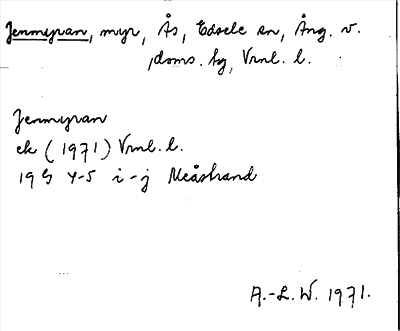 Jenmyran, myr, Ås, Edsele sn, Ång. v.
doms. hg, Vrnl. l.
Jenmyran
ek (1971) Vrnl. l.
19G 4-5 i-j Meåstrand
A.-L. W. 1971.